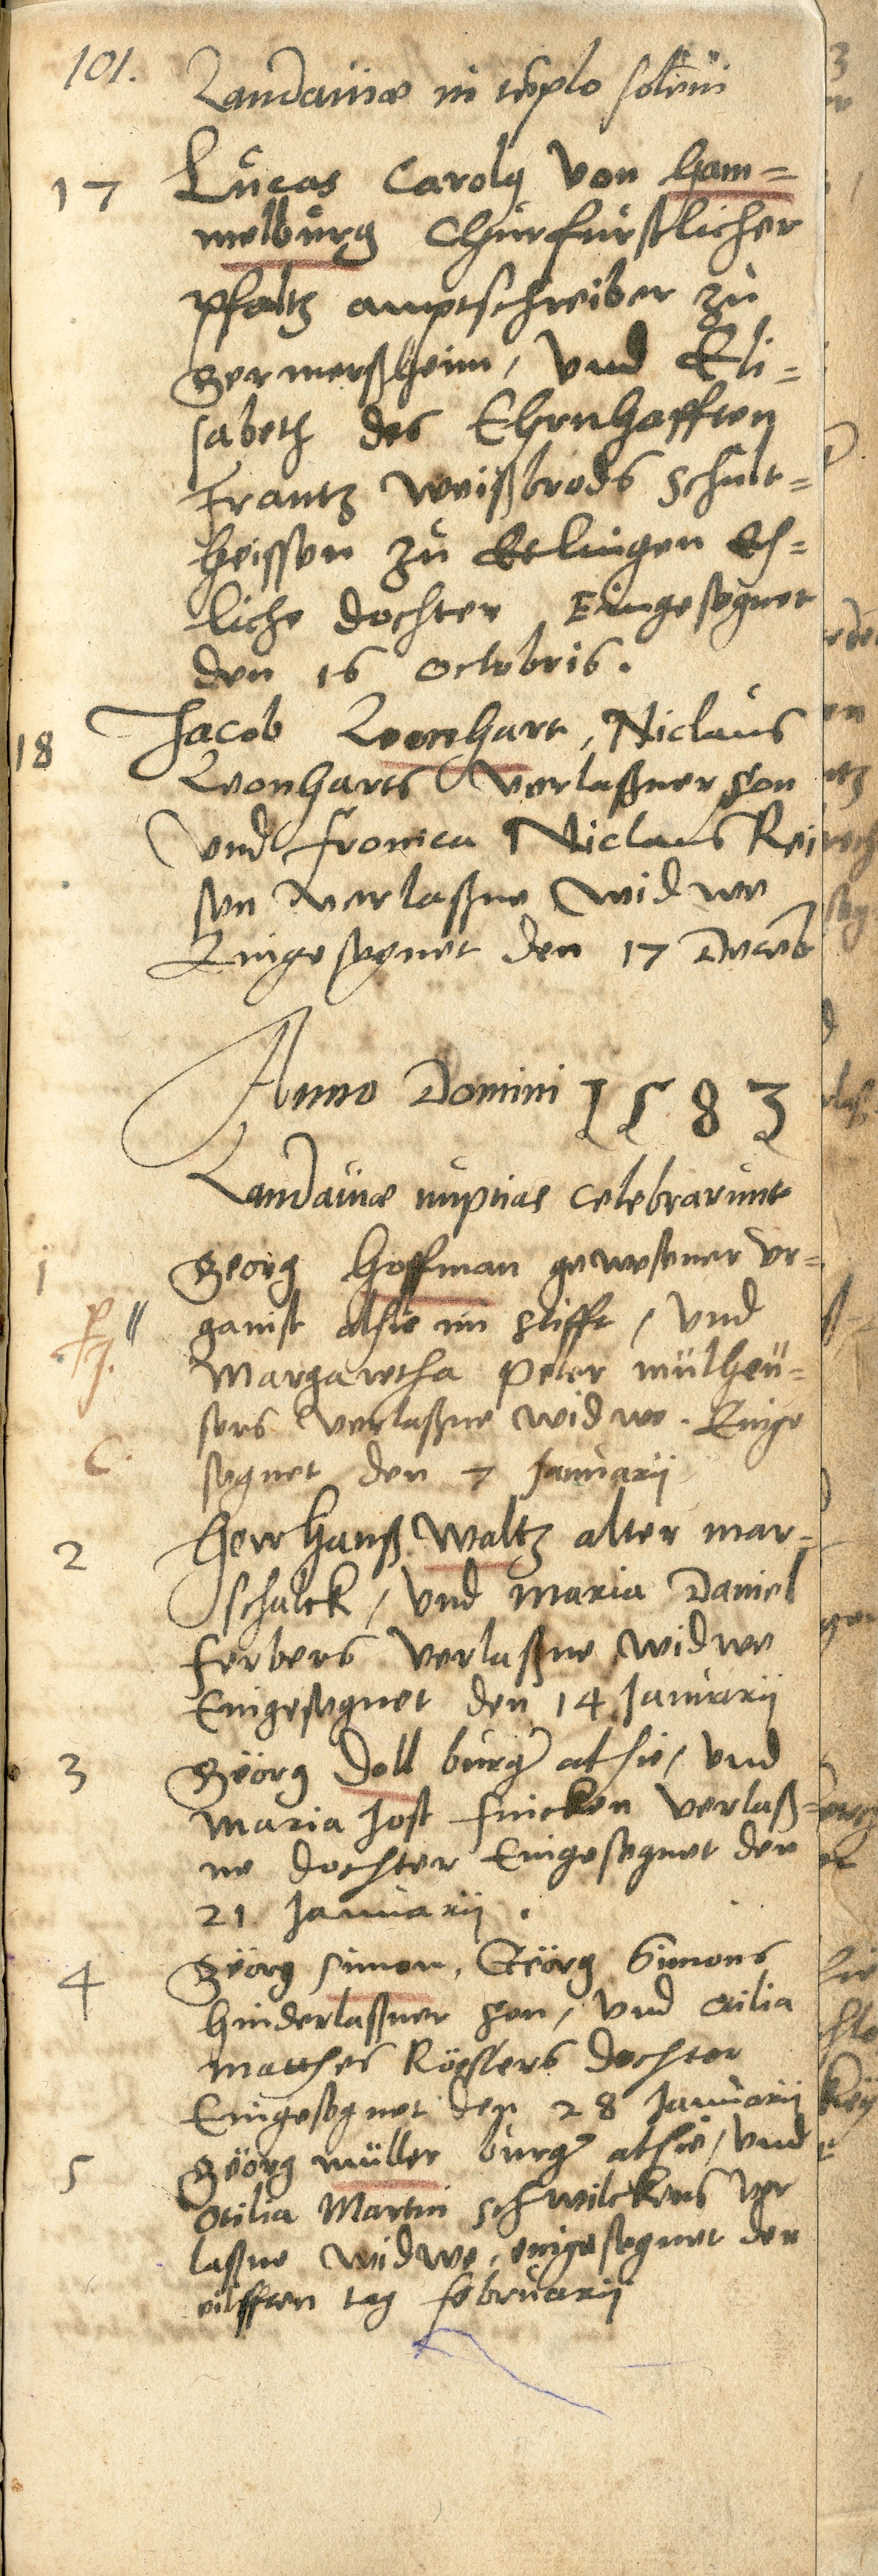 101.
Landaviæ in têplo solêni
17 Lucas Carolg von Ham=
melburg Churfurstlicher
Pfaltz amptschreiber zu
Germerßheim, und Eli=
sabeth des Ehrnhafften
Frantz Weißbrods Schult=
heissen zu Etlingen Eh=
liche dochter Eingesegnet
den 16 Octobris.
18 Jacob Leonhart, Niclaus
Leonharts verlaßner son
und Fronica Niclaus Rei
sen verlaßne widwe
Eingesegnet den 17 Decemb
Anno Domini 1583
Landaviæ nuptias celebrarunt
1 Georg Hoffman gewesener or=
ganist alhie im stifft, und
Margaretha Peter mülheu=
sers verlaßne widwe. Einge
C. segnet den 7 Januarii
2 Herr Hanß Waltz alter mar=
schalck, und Maria Daniel
Ferbers verlaßne widwe
Eingesegnet den 14 Januarii
3 Geörg Doll burger alhie, und
Maria Jost Fincken verlaß=
ne dochter Eingesegnet den
21 Januarii.
4 Geörg Simon, Geörg Simons
hinderlaßner son, und Otilia
Matthes Rößlers dochter
Eingesegnet den 28 Januarii
5 Geörg müller burger alhie, und
Otilia Martin schwilckens ver
laßne widwe, eingesegnet den
eilfften tag februarii